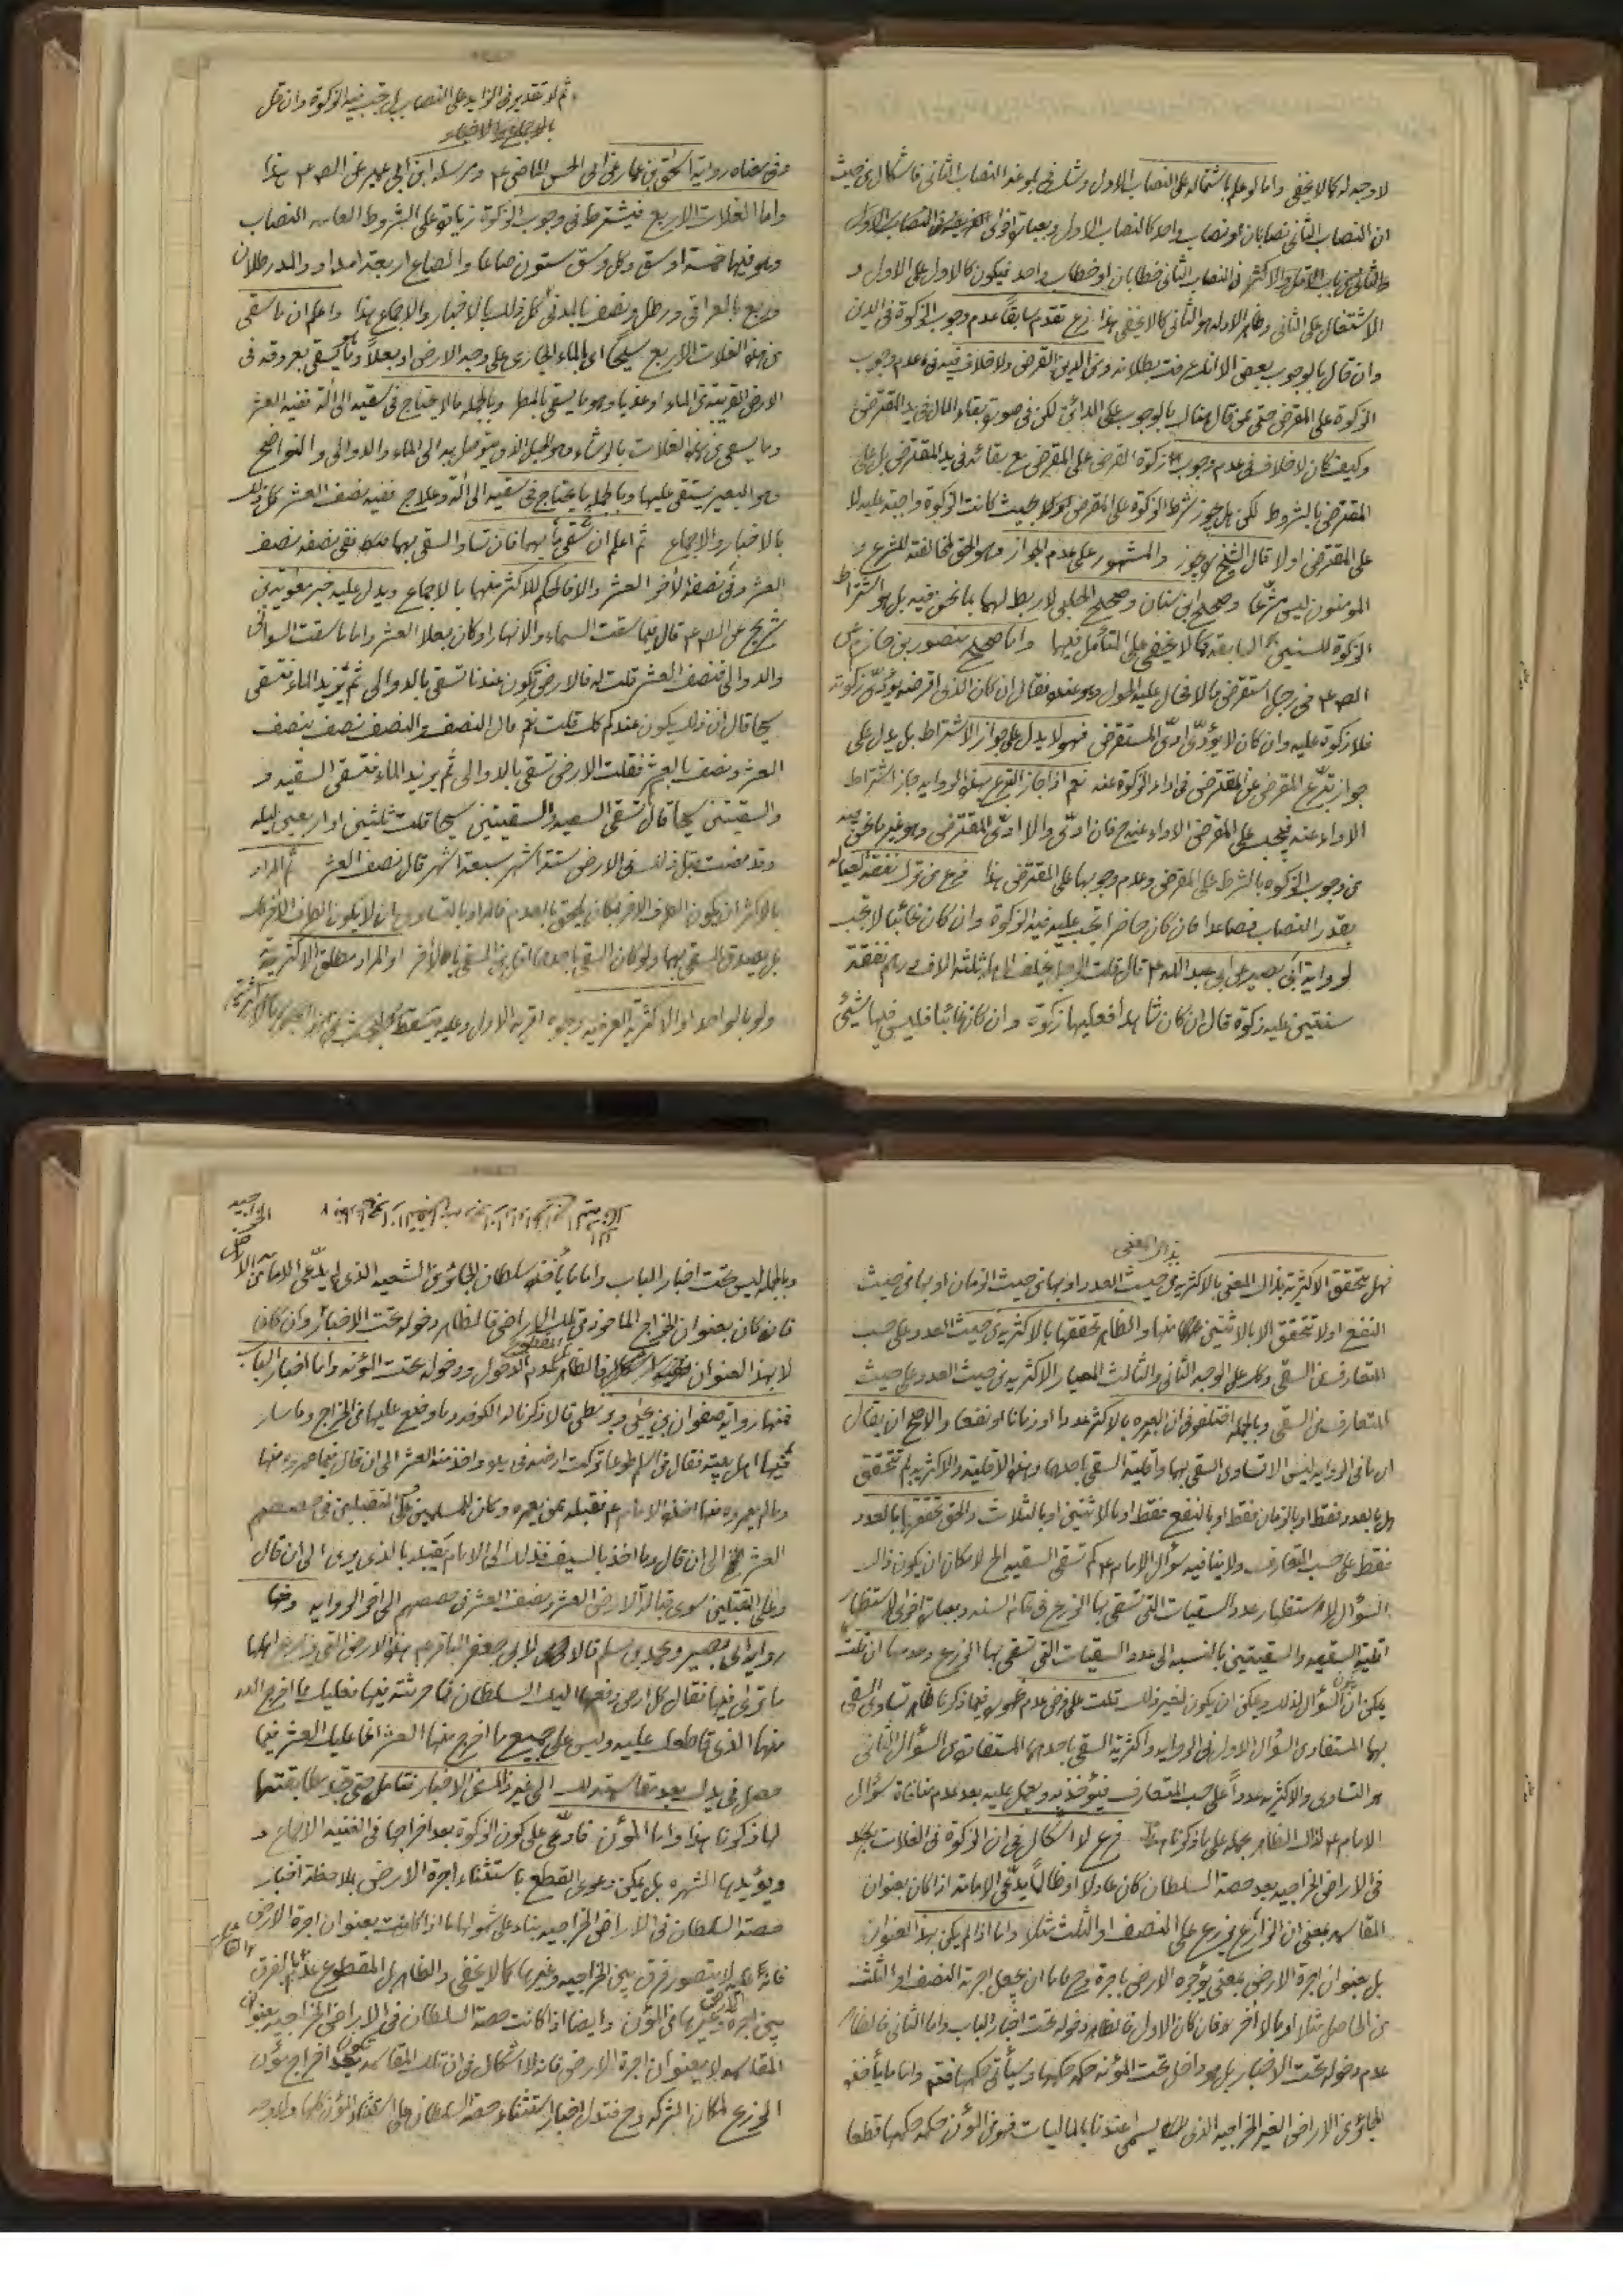 لا وجه له كما لا يخفى واما لو علم باشتماله على النصاب الاول وشك فى بلوغه النصاب الثانى فاشكال من حيث
ان النصاب الثانى نصابان او نصاب واحد كالنصاب الاول وبعبارة اخرى
فى النصاب الثانى خطابان او خطاب واحد فيكون كالاول على الاول و
الاشتغال على الثانى وظاهر الادلة هو الثانى كما لا يخفى هذا فرع تقدم سابقاً عدم وجوب الزكوة فى الدين
وان قال بالوجوب بعض الا انك عرفت بطلانه ومن الدين القرض ولا خلاف فيه فى عدم وجوب
الزكوة على المقرض حتى ممن قال هناك بالوجوب على الدائن لكن فى صورة بقاء المال فى يد المقترض
وكيف كان لا خلاف فى عدم وجوب زكوة القرض على المقرض مع بقائه فى يد المقترض بل على
المقترض بالشروط لكن هل يجوز شرط الزكوة على المقرض بحيث كانت الزكوة واجبة عليه لا
على المقترض اولا قال الشيخ يجوز والمشهور على عدم الجواز وهو الحق لمخالفته للشرع و
المؤمنون ليس مشرّعا وصحيح ابن سنان وصحيح الحلبى لا ربط لهما بما نحن فيه بل هو اشتراط
الزكوة للسنين السابقة كما لا يخفى على المتأمل فيها واما صحيح منصور بن حازم عن
الص ع فى رجل استقرض مالا فحال عليه الحول وهو عنده فقال ان كان الذى اقرضه يؤدّى زكوته
فلا زكوة عليه وان كان لا يؤدّى ادّى المستقرض فهو لا يدل على جواز الاشتراط بل يدل على
جواز تبرّع المقرض عن المقترض فى اداء الزكوة عنه نعم اذا جاز التبرع بهذه الرواية جاز اشتراط
الاداء عنه فيجب على المقرض الاداء عنه ح فان ادّى والا ادّى المقترض وهو غير ما نحن فيه
من وجوب الزكوة بالشرط على المقرض وعدم وجوبها على المقترض هذا فرع من ترك نفقة لعياله
بقدر النصاب فصاعدا فان كان حاضرا تجب عليه فيه الزكوة وان كان غائبا لا تجب
لرواية ابى بصير عن ابى عبد الله ع قال قلت الرجل يخلف لاهله ثلثة الاف درهم نفقة
سنتين عليه زكوة قال ان كان شاهدا فعليها زكوة وان كان غائبا فليس فيها شيئ
ثم لا تقدير فى الزايد على النصاب بل تجب فيه الزكوة وان قل
بالاجماع والاخبار
وفى معناه رواية اسحق بن عمار عن ابى الحسن الماضى ع ومرسلة ابن ابى عمير عن الص ع هذا
واما الغلات الاربع فيشترط فى وجوب الزكوة زيادة على الشروط العامه النصاب
وهو فيها خمسة اوسق وكل وسق ستون صاعا والصاع اربعة امداد والمد رطلان
وربع بالعراقى ورطل ونصف بالمدنى كل ذلك بالاخبار والاجماع هذا واعلم ان ما سقى
من هذه الغلات الاربع سيحا اى بالماء الجارى على وجه الارض او بعلاً وهو ما يسقى بعروقه فى
الارض القريبة من الماء او عذيا وهو ما يسقى بالمطر وبالجمله ما لا يحتاج فى سقيه الى آلة ففيه العشر
وما يسقى من هذه الغلات بالرشاء وهو الحبل الذى يتوصل به الى الماء والدوالى والنواضح
وهو البعير يستقى عليها وبالجمله ما يحتاج فى سقيه الى آلة وعلاج ففيه نصف العشر كل ذلك
بالاخبار والاجماع ثم اعلم ان سقى بهما فان تساو السقى بهما ففى نصفه نصف
العشر وفى نصفه الاخر العشر والا فالحكم للاكثر منهما بالاجماع ويدل عليه خبر معوية بن
شريح عن الص ع قال فيما سقت السماء والانهار او كان بعلا العشر واما ما سقت السوانى
والدوالى فنصف العشر قلت له فالارض تكون عندنا تسقى بالدوالى ثم يزيد الماء فتسقى
سيحا قال ان ذا ليكون عندكم كك قلت نعم قال النصف والنصف نصف بنصف
العشر ونصف بالعشر فقلت الارض تسقى بالدوالى ثم يزيد الماء فتسقى السقية و
والسقيتين سيحا قال كم تسقى السقية والسقيتين سيحا قلت ثلثين او اربعين ليله
وقد مضت قبل ذلك فى الارض ستة اشهر سبعة اشهر قال نصف العشر ثم المراد
بالاكثر ان يكون الطرف الاخر بمكان يلحق بالعدم فالمراد بالتساوى ان لا يكون الطرف الاخر كك
بل يصدق السقى بهما ولو كان السقى باحدهما اقل من السقى بالاخر او المراد مطلق الاكثرية
ولو بالواحد او الاكثرية العرفيه وجوه اقربه الاول وعليه
بذاك المعنى
فهل يتحقق الاكثرية بذاك المعنى بالاكثرية من حيث العدد او بها من حيث الزمان او بها من حيث
النفع اولا تتحقق الا بالاثنين منها والظاهر تحققها بالاكثرية من حيث العدد على حسب
المتعارف من السقى وكك على الوجه الثانى والثالث المعيار الاكثرية من حيث العدد على حيث
المتعارف من السقى وبالجمله اختلفو فى ان العبره بالاكثر عددا او زمانا او نفعا والاصح ان يقال
ان ما فى الروايه ليس الا تساوى السقى بهما واقلية السقى باحدهما وهذه الاقلية والاكثريه بم تتحقق
هل بالعدد فقط او بالزمان فقط او بالنفع فقط او بالاثنين او بالثلاث والحق تحققها بالعدد
فقط على حسب المتعارف ولا ينافيه سؤال الامام ع كم تسقى السقيه الخ لامكان ان يكون ذاك
السؤال لاستظهار عدد السقيات التى تسقى بها الزرع فى تمام السنه وبعبارة اخرى لاستظهار
اقلية السقيه والسقيتين بالنسبه الى عدد السقيات التى تسقى بها الزرع وعدمها ان قلت
يمكن ان يكون السؤال لذلك ويمكن ان يكون لغير ذلك قلت على فرض عدم ظهوره فيما ذكرنا ظاهر تساوى السقى
بهما المستفاد من السؤال الاول فى الروايه واكثرية السقى باحدهما المستفاد من السؤال الثانى
هو التساوى والاكثريه عدداً على حسب المتعارف فيؤخذ به ويعمل عليه بعد عدم منافاة سؤال
الامام ع لذاك الظاهر بحمله على ما ذكرنا هذا فرع لا اشكال فى ان الزكوة فى الغلات بعد
فى الاراضى الخراجيه بعد حصة السلطان كان عادلا او ظالماً يدّعى الامامة اذا كان بعنوان
المقاسمه بمعنى ان الزارع يزرع على النصف او الثلث مثلا واما اذا لم يكن بهذا العنوان
بل بعنوان اجرة الارض بمعنى يؤجره الارض باجرة وح فاما ان يجعل اجرته النصف او الثلث
من الحاصل مثلا او بالاخر فان كان الاول فالظاهر دخوله تحت اخبار الباب واما الثانى فالظاهر
عدم دخوله تحت الاخبار بل هو داخل تحت المؤنه حكمه حكمها وسيأتى حكمها فتم واما ما يأخذه
الجائر من الاراضى الغير الخراجيه الذى يسمى عندنا بالماليات فهو من المؤن حكمه حكمها قطعا
وبالجمله ليس تحت اخبار الباب واما ما يأخذه سلطان الجائر من الشيعه الذى لا يدّعى الامامة
فان كان بعنوان الخراج الماخوذ من تلك الاراضى فالظاهر دخوله تحت الاخبار وان كان
لا بهذا العنوان فالظاهر عدم الدخول ودخوله تحت المؤنه واما اخبار الباب
فمنها رواية صفوان بن يحيى وبزنطى قالا ذكرنا له الكوفه وما وضع عليها من الخراج وما سار
فيها اهل بيته فقال من اسلم طوعا تركت ارضه فى يده واخذ منه العشر الى ان قال فيما عمروه منها
وما لم يعمروه منها اخذه الامام ع فقبله ممن يعمره وكان للمسلمين وعلى المتقبلين فى حصصهم
العشر الخ الى ان قال وما اخذ بالسيف فذلك الى الامام يقبله بالذى يرى الى ان قال
وعلى المتقبلين سوى قبالة الارض العشر ونصف العشر فى حصصهم الى اخر الروايه ومنها
رواية ابى بصير ومحمد بن مسلم قالا لابى جعفر الباقر ع هذه الارض التى يزارع اهلها
ما ترى فيها فقال كل ارض دفعها اليك السلطان فما حرثته فيها فعليك مما اخرج الله
منها الذى قاطعك عليه وليس على جميع ما اخرج منها العشر انما عليك العشر فيما
حصل فى يدك بعد مقاسمته لك الى غير ذلك من الاخبار فتامل حتى تجد مطابقتها
لما ذكرنا هذا واما المؤن فادّعى على كون الزكوة بعد اخراجها فى الغنيه الاجماع و
ويؤيدها الشهره بل يمكن دعوى القطع باستثناء اجرة الارض بملاحظة اخبار
حصة السلطان فى الاراضى الخراجيه بناء على شمولها ما اذا كانت بعنوان اجرة الارض
فانه لا يتصور فرق بين الخراجيه وغيرها كما لا يخفى والظاهر بل المقطوع عدم الفرق
بين اجرة الارض وغيرها من المؤن وايضا اذا كانت حصة السلطان فى الاراضى الخراجيه بعنوان
المقاسمه لا بعنوان اجرة الارض فانه لا اشكال فى ان تلك المقاسمه تكون بعد اخراج مؤن
الزرع لمكان الشركه وح فتدل اخبار استثناء حصة السلطان على استثناء المؤن كلها